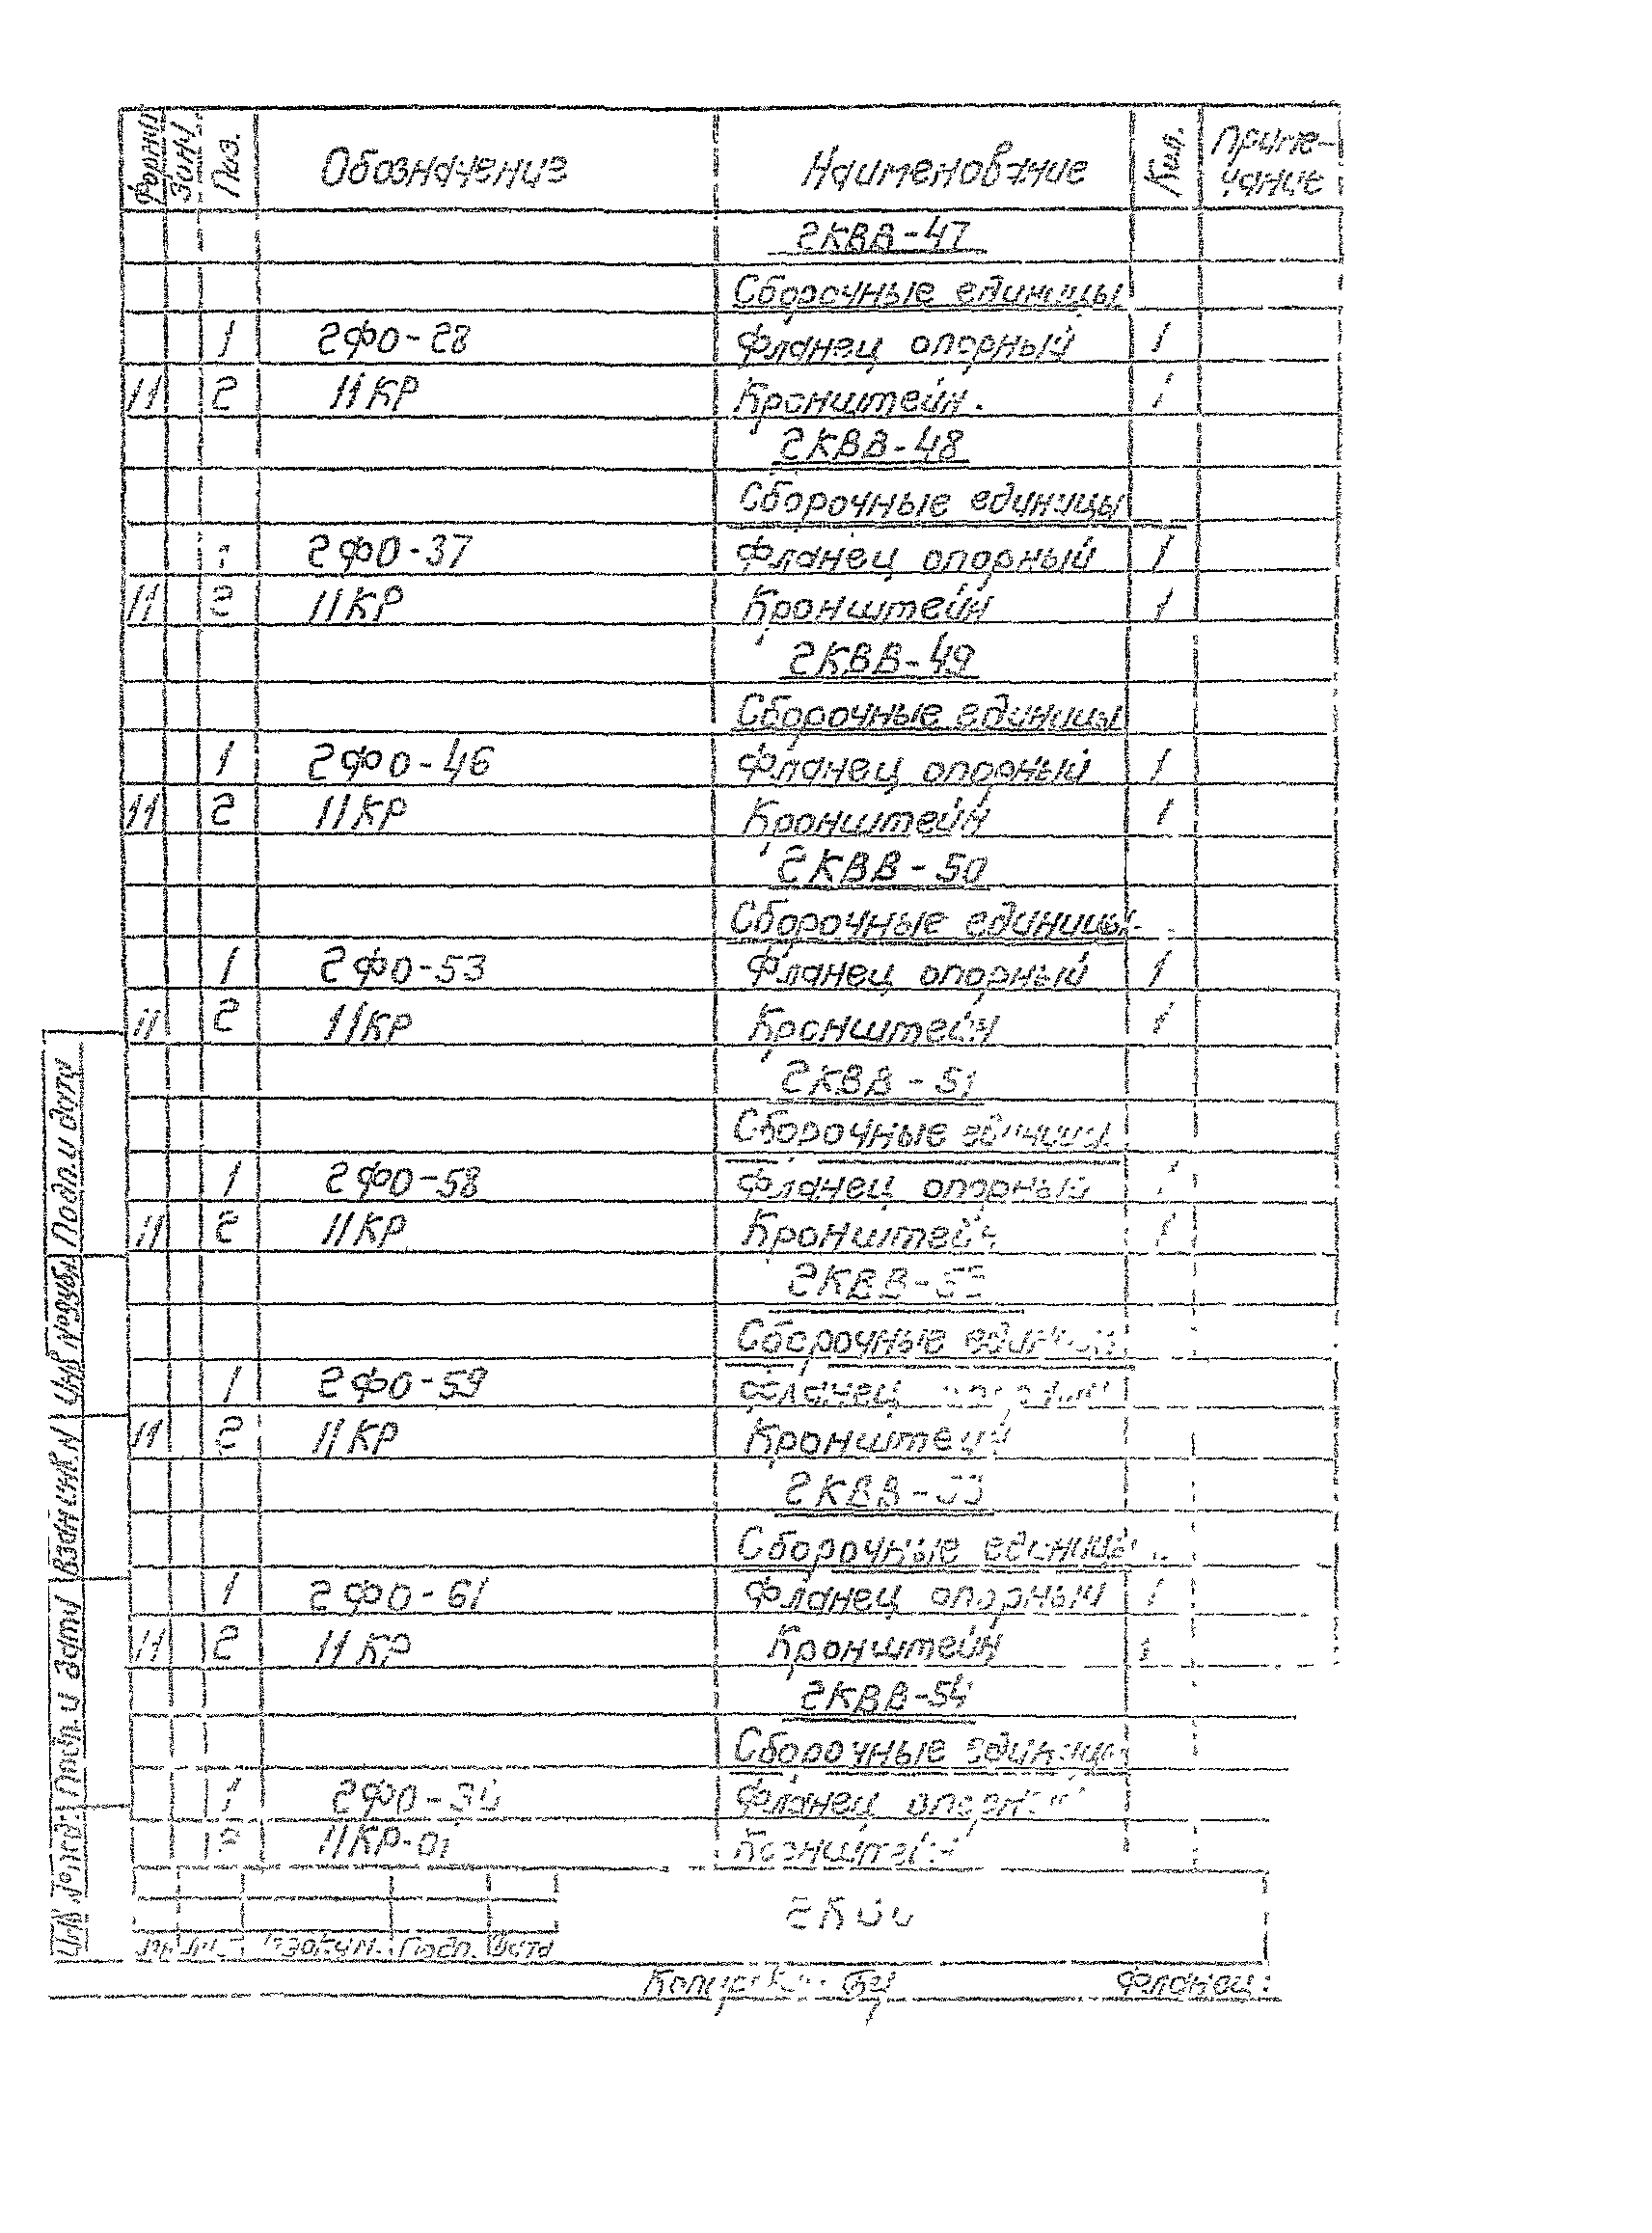 Формат Зона Поз. Обозначение Наименование Кол. Приме-
чание
2КВВ-47
Сборочные единицы
1 2ФО-28 Фланец опорный 1
11 2 11КР Кронштейн. 1
2КВВ-48
Сборочные единицы
1 2ФО-37 Фланец опорный 1
11 2 11КР Кронштейн 1
2КВВ-49
Сборочные единицы
1 2ФО-46 Фланец опорный 1
11 2 11КР Кронштейн 1
2КВВ-50
Сборочные единицы
1 2ФО-53 Фланец опорный 1
11 2 11КР Кронштейн 1
2КВВ-51
Сборочные единицы
1 2ФО-58 Фланец опорный 1
11 2 11КР Кронштейн 1
2КВВ-
Сборочные единицы
1 2ФО-59 Фланец опорный
11 2 11КР Кронштейн
2КВВ-
Сборочные единицы
1 2ФО-61 Фланец опорный 1
11 2 11КР Кронштейн 1
2КВВ-54
Сборочные единицы
1 Фланец опорный
2 11КР-01 Кронштейн
Подп. дата
Фланец
Инв. № подл. Подп. и дата Взам. инв. № Инв. № дубл. Подп. и дата